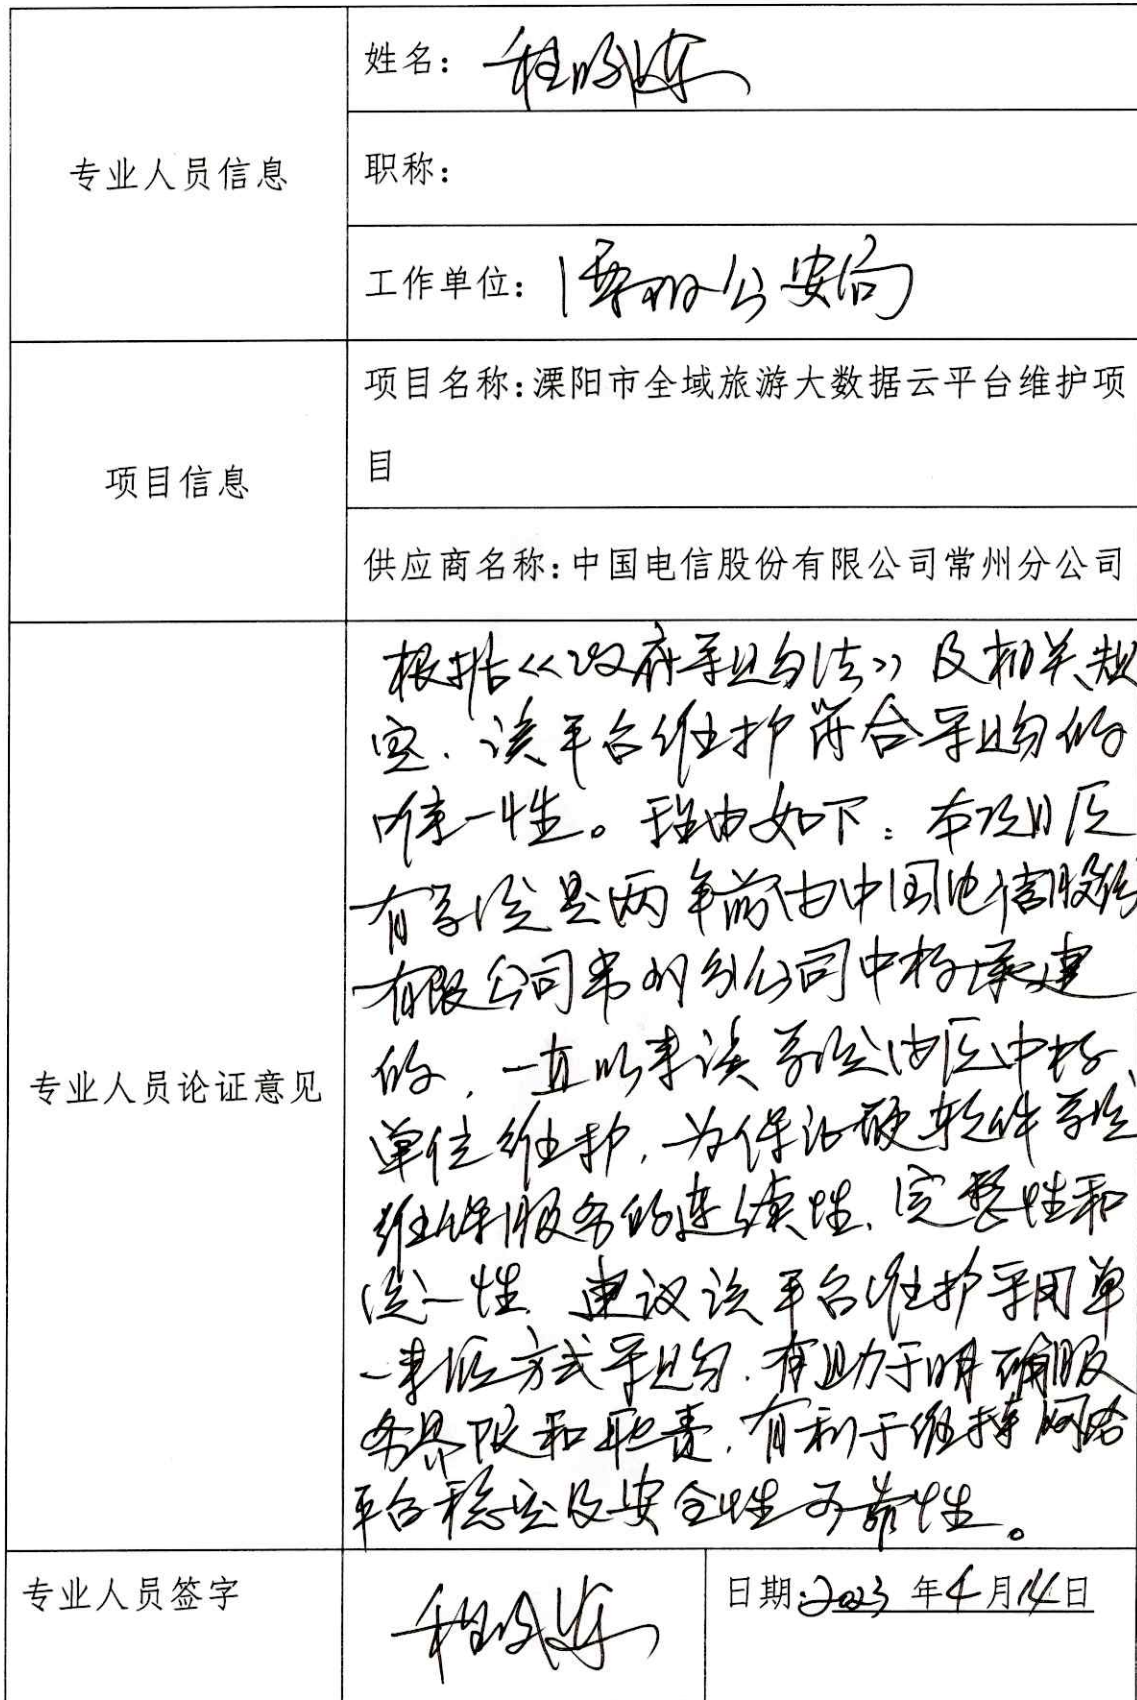 姓名：程
专业人员信息
职称：
工作单位：溧阳公安局
项目名称：溧阳市全域旅游大数据云平台维护项
目
项目信息
供应商名称：中国电信股份有限公司常州分公司
根据《政府采购法》及相关规
定，该平台维护符合采购的
唯一性。理由如下：本项目原
有系统是两年前由中国电信股份
有限公司常州分公司中标承建
的，一直以来该系统由原中标
专业人员论证意见
单位维护，为保证硬软件系统
维保服务的连续性、完整性和
统一性，建议该平台维护采用单
一来源方式采购，有助于明确服
务界限和职责，有利于维持网络
平台稳定及安全性可靠性。
专业人员签字
程
日期：2023年4月14日